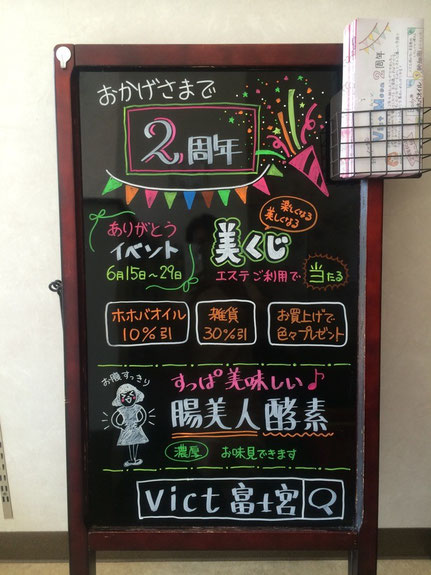 おかげさまで
2周年
ありがとう
イベント
6月15日～29日
楽しくなる
美しくなる
美くじ
エステご利用で
当たる
ホホバオイル
10%引
雑貨
30%引
お買上げで
色々プレゼント
お腹すっきり
すっぱ美味しい♪
腸美人酵素
濃厚
お味見できます
Vict富士宮
2周年